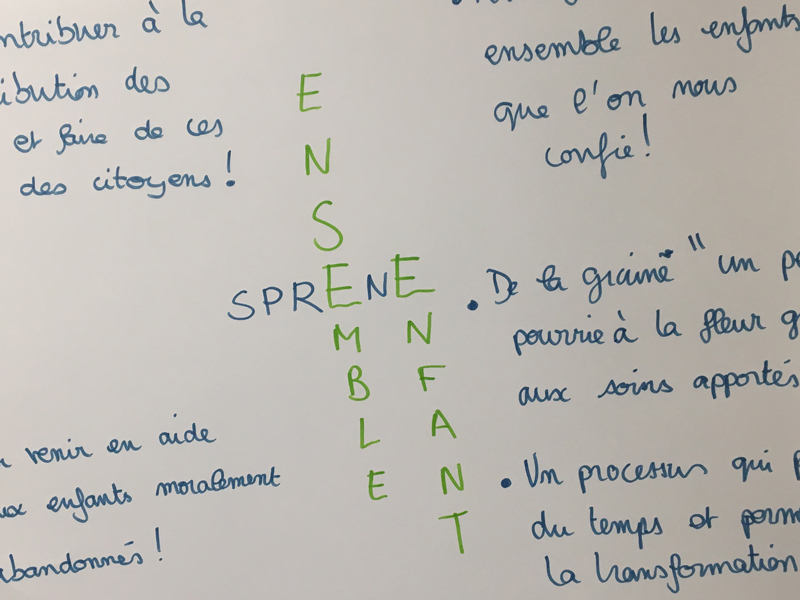 à la
des
et faire de ces
des citoyens !
ensemble les enfants
que l'on nous
confie !
E
N
S
SPRENE
M
B
L
E
N
F
A
N
T
. De la graine " un
pourrie à la fleur
aux soins apportés
venir en aide
enfants moralement
abandonnés !
. Un processus qui
du temps et
la transformation